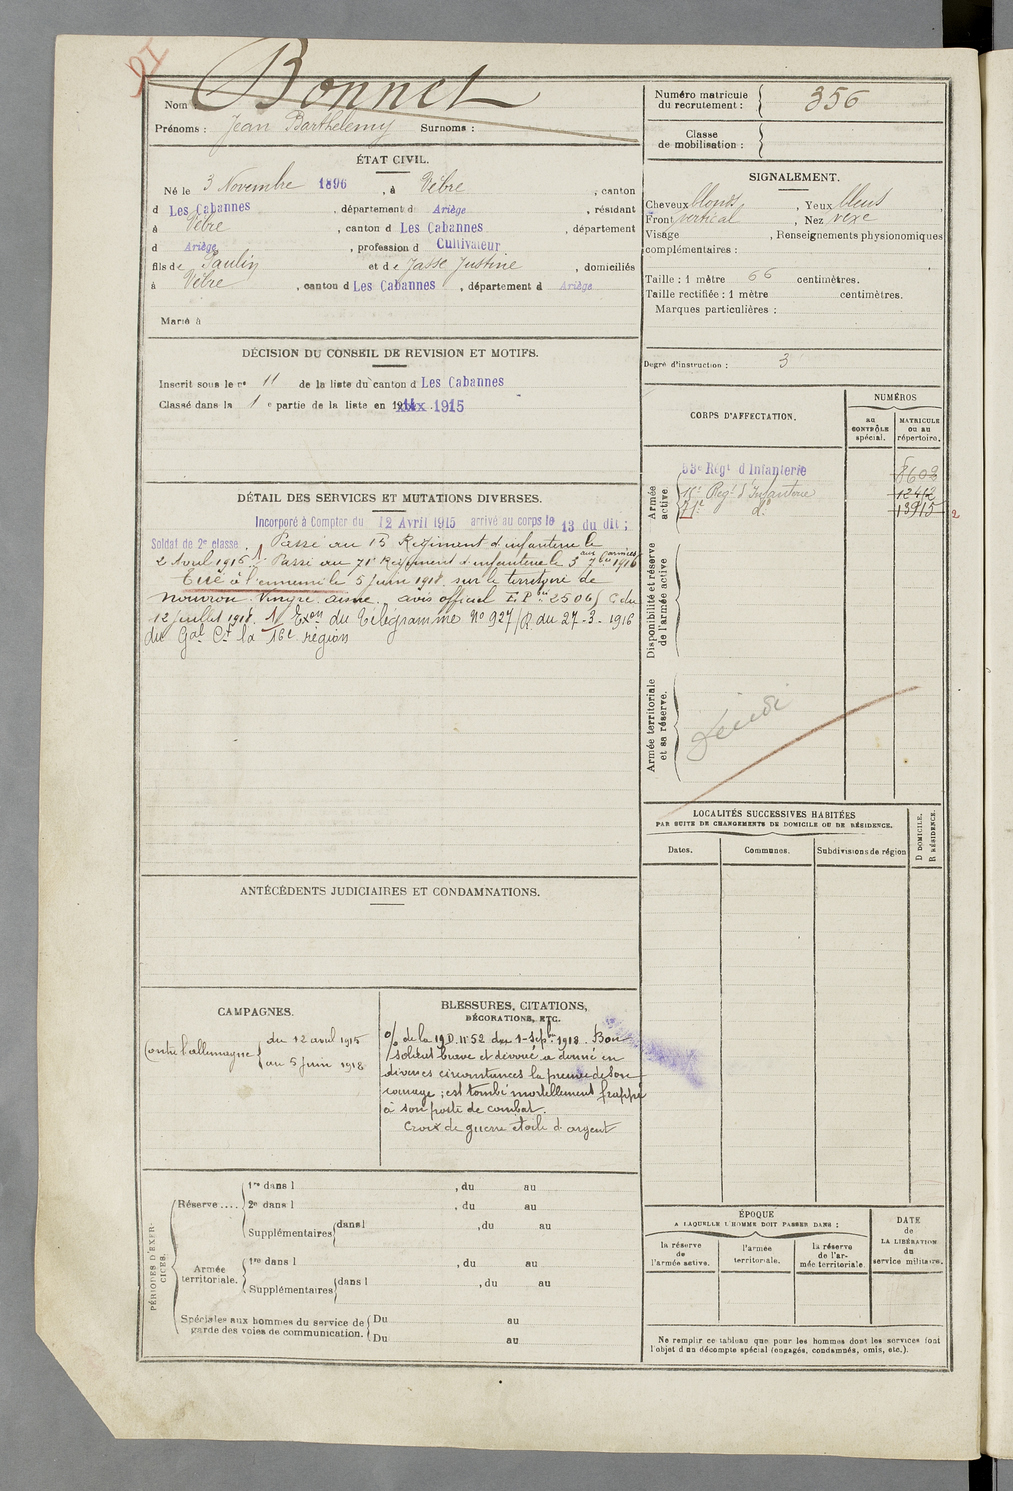 91
Nom : Bonnet
Prénoms : Jean Barthélemy Surnoms :
ÉTAT CIVIL.
Né le 3 Novembre 1896, à Vèbre, canton
d Les Cabannes, département d Ariège, résidant
à Vèbre, canton d Les Cabannes, département
d Ariège, profession d Cultivateur
fils de Paulin et de Jasse Justine, domiciliés
à Vèbre, canton d Les Cabannes, département d Ariège
Marié à
DÉCISION DU CONSEIL DE REVISION ET MOTIFS.
Inscrit sous le n° 11 de la liste du canton d Les Cabannes
Classé dans la 1 e partie de la liste en 1915
DÉTAIL DES SERVICES ET MUTATIONS DIVERSES.
Incorporé à Compter du 12 Avril 1915 arrivé au corps le 13 du dit ;
Soldat de 2e classe. Passé au 15 Régiment d'infanterie le
2 Avril 1916 1. Passé au 71e Régiment d'infanterie le 5 7bre 1916
aux armées
Tué à l'ennemi le 5 juin 1918 sur le territoire de
Nouvron-Vingré. Aisne. avis officiel E.P. 2506 / C du
12 juillet 1918. 1/ Exon du Télégramme No 927/R du 27-3-1916
du Gal Ct la 16e région
CAMPAGNES.
Contre l'allemagne du 12 avril 1915
au 5 juin 1918
BLESSURES, CITATIONS,
DÉCORATIONS, ETC.
O/ de la 19 D. n° 52 du 1-Sepbre 1918. Bon
soldat brave et dévoué a donné en
diverses circonstances la preuve de son
courage ; est tombé mortellement frappé
à son poste de combat.
Croix de guerre étoile d'argent
ANTÉCÉDENTS JUDICIAIRES ET CONDAMNATIONS.
PÉRIODES D'EXERCICES.
Réserve....
1re dans l , du au
2e dans l , du au
Supplémentaires dans l , du au
Armée territoriale.
1re dans l , du au
Supplémentaires dans l , du au
Spéciales aux hommes du service de garde des voies de communication.
Du au
Du au
Numéro matricule du recrutement : 356
Classe de mobilisation :
SIGNALEMENT.
Cheveux blonds, Yeux bleus
Front vertical, Nez vexe
Visage , Renseignements physionomiques
complémentaires :
Taille : 1 mètre 66 centimètres.
Taille rectifiée : 1 mètre centimètres.
Marques particulières :
Degré d'instruction : 3
CORPS D'AFFECTATION.
NUMÉROS
au CONTRÔLE spécial.
MATRICULE ou au répertoire.
Armée active
53e Régt d'Infanterie 8603
15e Régt d'Infanterie 12412
71e do 13915 2
Disponibilité et réserve de l'armée active
Armée territoriale et sa réserve.
LOCALITÉS SUCCESSIVES HABITÉES
PAR SUITE DE CHANGEMENTS DE DOMICILE OU DE RÉSIDENCE.
Dates. Communes. Subdivisions de région
D DOMICILE. R RÉSIDENCE.
ÉPOQUE
A LAQUELLE L'HOMME DOIT PASSER DANS :
la réserve de l'armée active.
l'armée territoriale.
la réserve de l'armée territoriale.
DATE de LA LIBÉRATION du service militaire.
Ne remplir ce tableau que pour les hommes dont les services font
l'objet d'un décompte spécial (engagés, condamnés, omis, etc.).